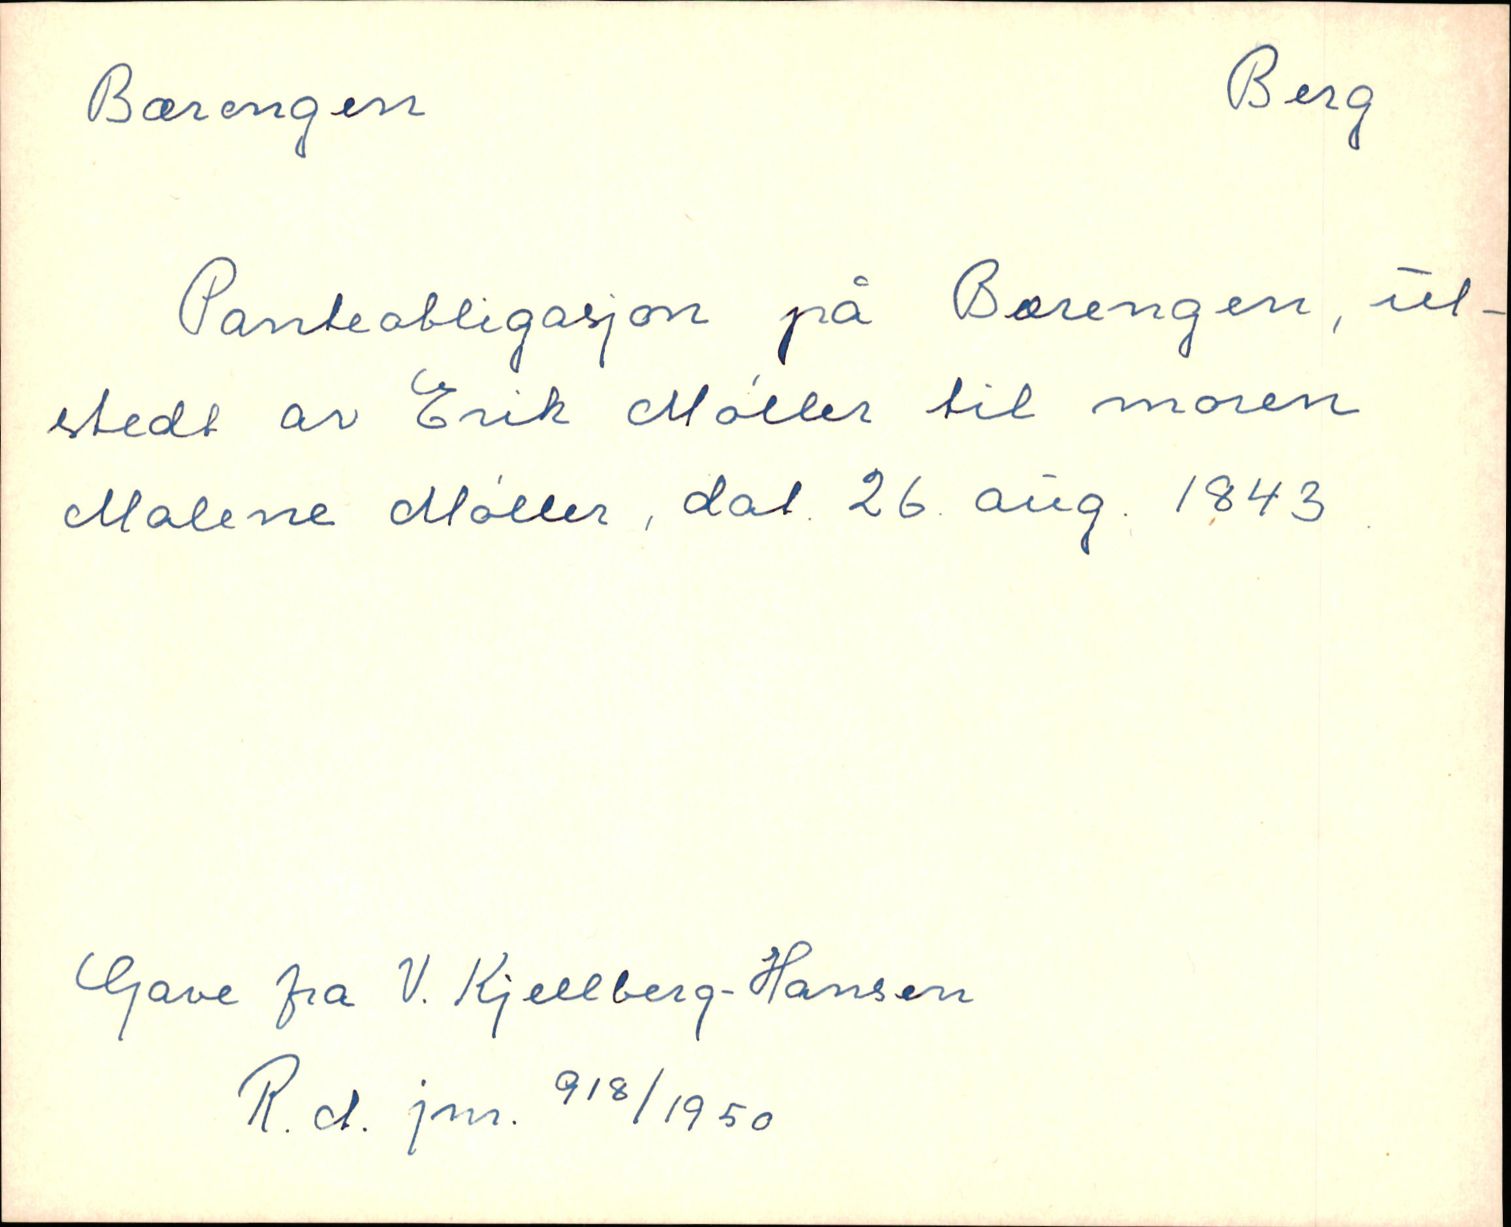 Bærengen Berg
Panteobligasjon på Bærengen, ut-
stedt av Erik Møller til moren
Malene Møller, dat. 26. aug. 1843.
Gave fra V. Kjellberg-Hansen
R. d. jnr. 918/1950